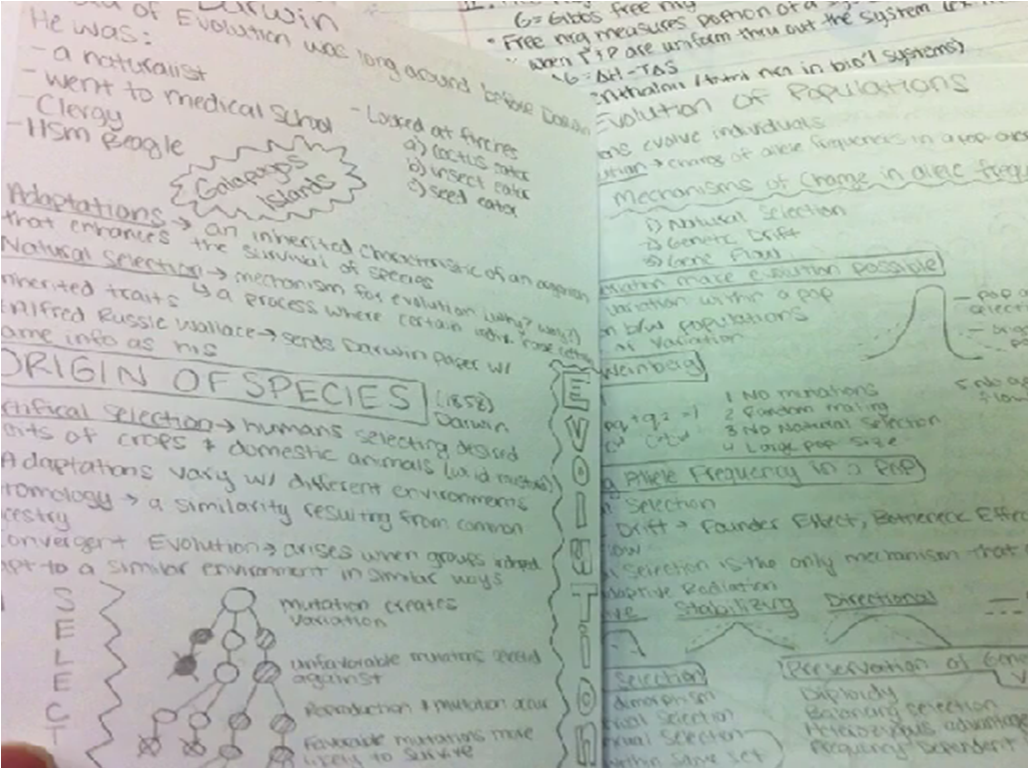 Darwin
of Evolution was long around before Darwin
He was:
- a naturalist
- went to medical School
- Clergy
- HSM Beagle
Galapagos
Islands
- Looked at finches
a) cactus eater
b) insect eater
c) seed eater
Adaptations → an inherited characteristic of an
that enhances the survival of species
Natural selection → mechanism for evolution (why? )
↳ a process where certain
inherited traits
Alfred Russle Wallace → sends Darwin paper w/
same info as his
ORIGIN OF SPECIES (1858)
Darwin
selection → humans selecting desired
of crops & domestic animals
Adaptations vary w/ different environments
Homology → a similarity resulting from common
ancestry
Convergent Evolution → arises when groups
to a similar environment in similar ways
SELECT
mutation creates
variation
unfavorable mutations
against
Reproduction & mutation occur
Favorable mutations more
likely to survive
EVOLUTION
G = Gibbs free nrg
• Free nrg measures portion of a
when T & P are uniform thru out the system
G = ΔH - TΔS
enthalpy (total nrg in bio'l systems)
Evolution of Populations
evolve individuals
→ change of allele frequencies in a pop
Mechanisms of Change in allele
1) Natural Selection
2) Genetic Drift
3) Gene Flow
make evolution possible
variation within a pop
b/w populations
of variation
Weinberg
1 No mutations
2 Random mating
3 No Natural Selection
4 Large pop size
Allele Frequency in a Pop
Selection
Drift → Founder Effect, Bottleneck
Selection is the only mechanism that
Adaptive Radiation
Stabilizing Directional
Selection
dimorphism
Selection
Selection
within same
Preservation of
Diploidy
Balancing selection
Heterozygous
Frequency Dependent